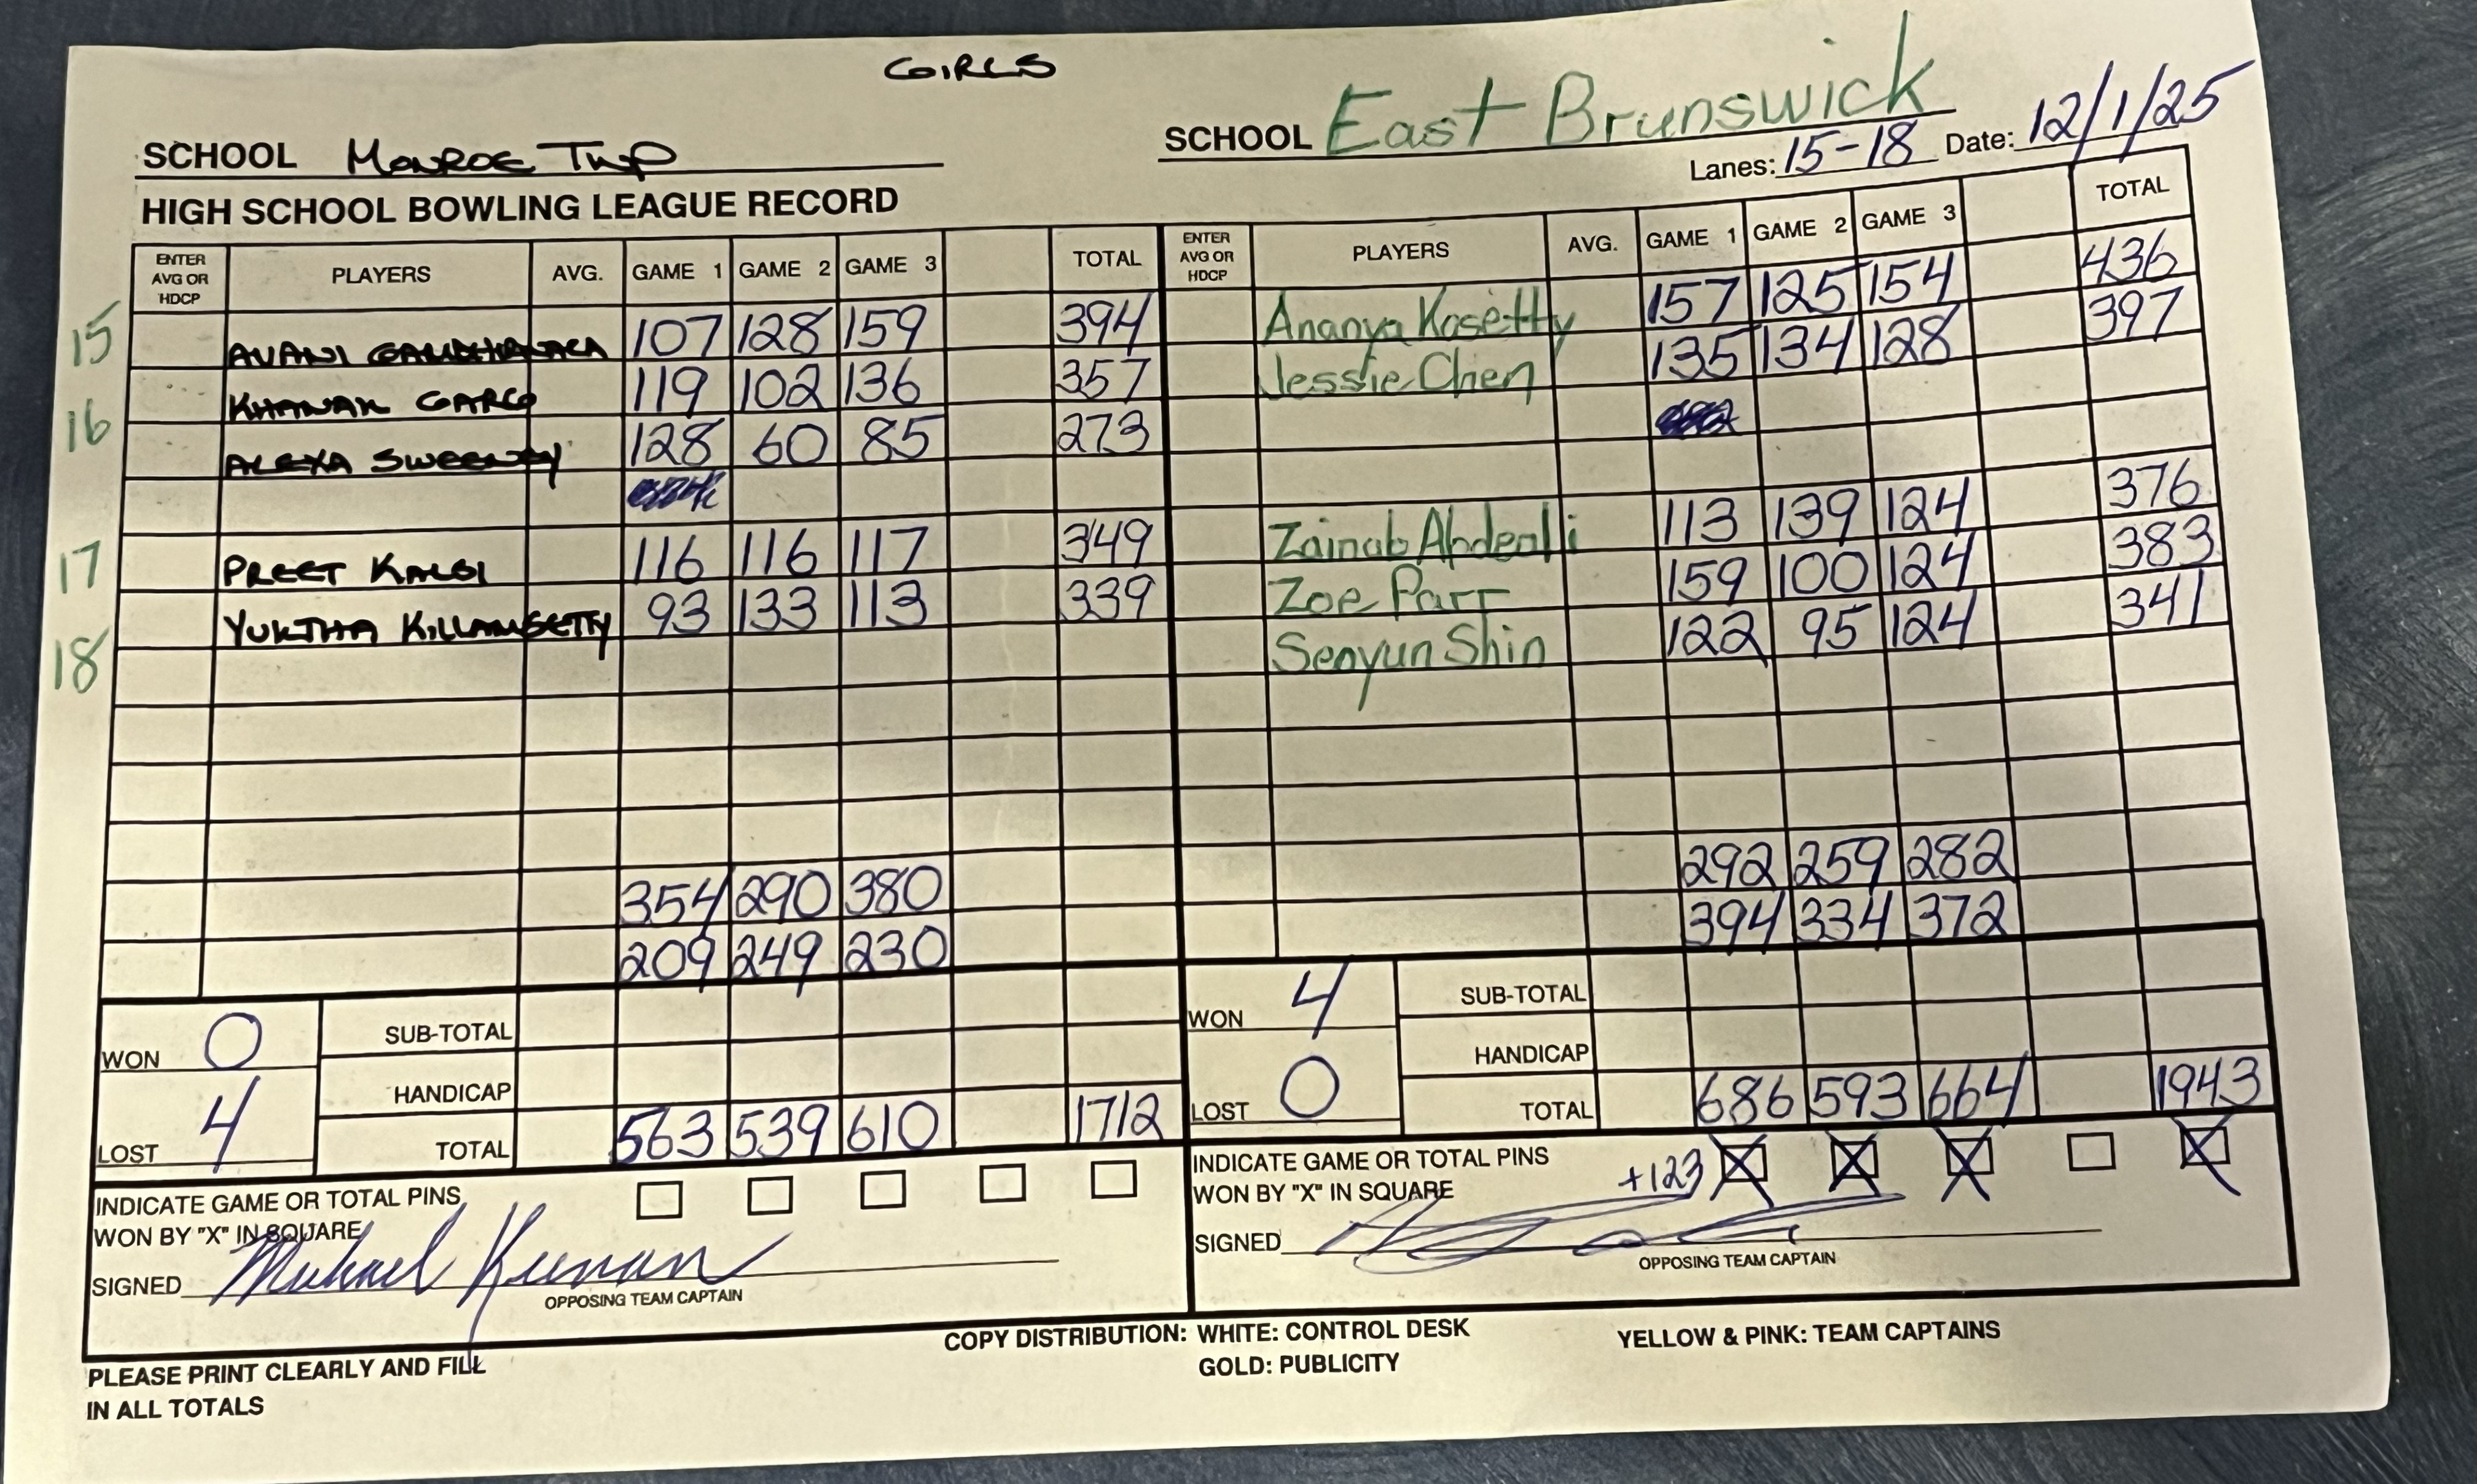 GIRLS
SCHOOL Monroe Twp
SCHOOL East Brunswick
Lanes: 15-18 Date: 12/1/25
HIGH SCHOOL BOWLING LEAGUE RECORD
ENTER AVG OR HDCP PLAYERS AVG. GAME 1 GAME 2 GAME 3 TOTAL
15
AVANI 107 128 159 394
KHANAK GARG 119 102 136 357
16
ALEXA SWEENEY 128 60 85 273
17
PREET KALSI 116 116 117 349
YUKTHA KILLAMSETTY 93 133 113 339
18
354 290 380
209 249 230
WON 0
LOST 4
SUB-TOTAL
HANDICAP
TOTAL 563 539 610 1712
INDICATE GAME OR TOTAL PINS
WON BY "X" IN SQUARE
SIGNED Michael Keenan
OPPOSING TEAM CAPTAIN
ENTER AVG OR HDCP PLAYERS AVG. GAME 1 GAME 2 GAME 3 TOTAL
Ananya Kosetty 157 125 154 436
Jessie Chen 135 134 128 397
Zainab Abdeali 113 139 124 376
Zoe Parr 159 100 124 383
Seoyun Shin 122 95 124 341
292 259 282
394 334 372
WON 4
LOST 0
SUB-TOTAL
HANDICAP
TOTAL 686 593 664 1943
INDICATE GAME OR TOTAL PINS
WON BY "X" IN SQUARE
+123 X X X X
SIGNED
OPPOSING TEAM CAPTAIN
PLEASE PRINT CLEARLY AND FILL
IN ALL TOTALS
COPY DISTRIBUTION: WHITE: CONTROL DESK
GOLD: PUBLICITY
YELLOW & PINK: TEAM CAPTAINS